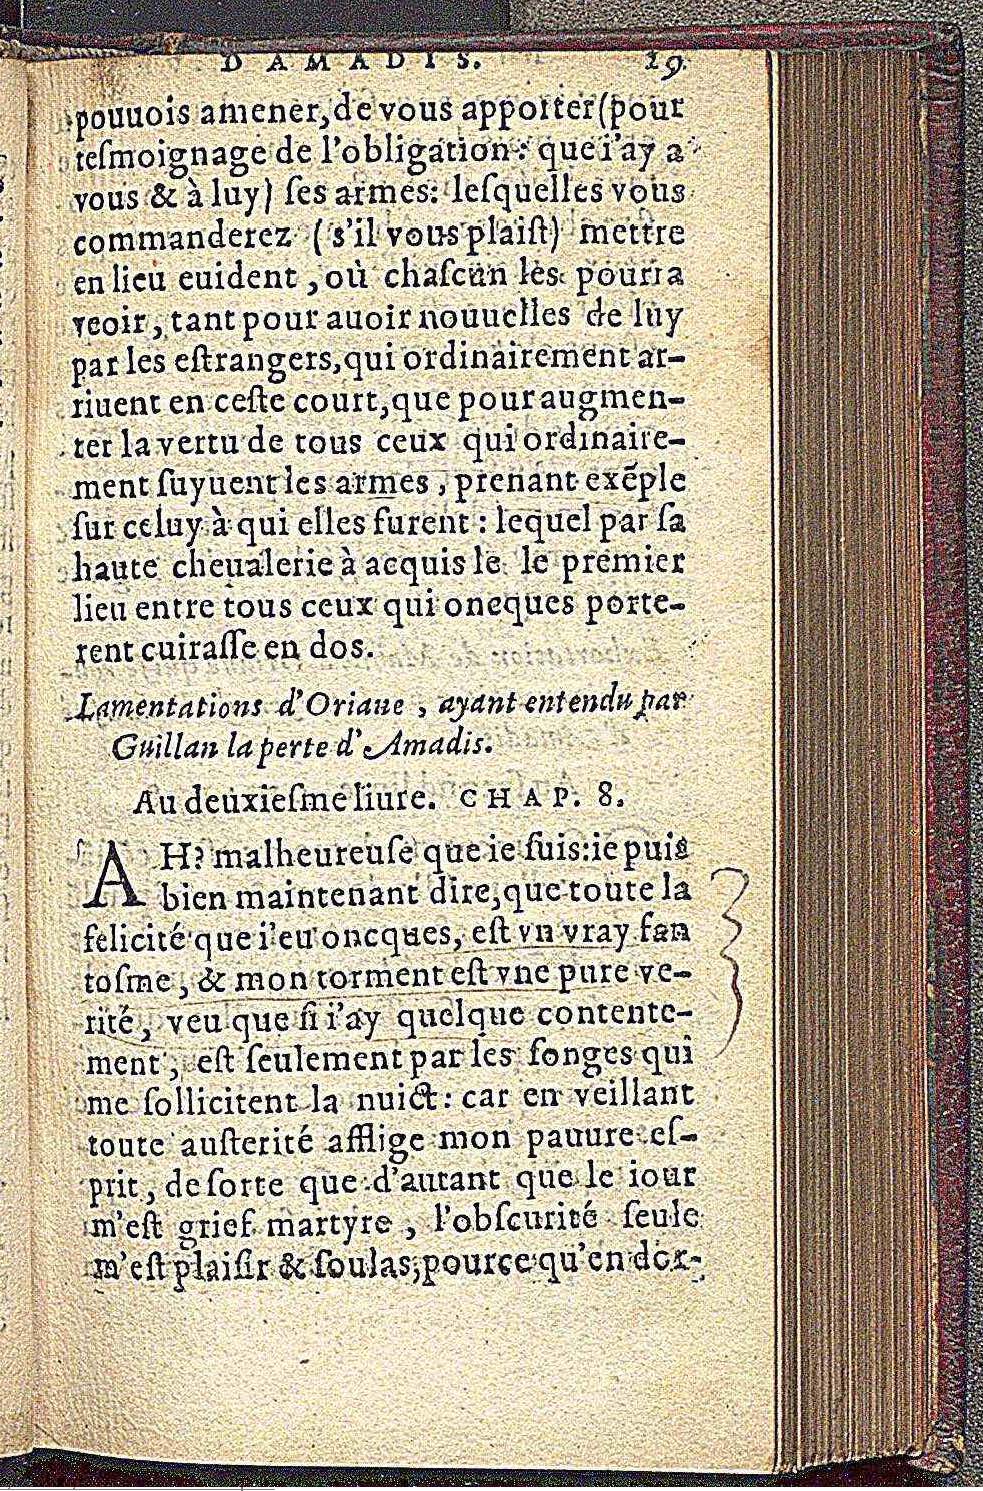 D'AMADIS. 29.
pouuois amener, de vous apporter (pour
tesmoignage de l'obligation: que i'ay a
vous & à luy) ses armes: lesquelles vous
commanderez (s'il vous plaist) mettre
en lieu euident, où chascun les pourra
veoir, tant pour auoir nouuelles de luy
par les estrangers, qui ordinairement ar-
riuent en ceste court, que pour augmen-
ter la vertu de tous ceux qui ordinaire-
ment suyuent les armes, prenant exẽple
sur celuy à qui elles furent: lequel par sa
haute cheualerie à acquis le le premier
lieu entre tous ceux qui oncques porte-
rent cuirasse en dos.
Lamentations d'Oriane, ayant entendu par
Guillan la perte d'Amadis.
Au deuxiesme liure. CHAP. 8.
AH? malheureuse que ie suis: ie puis
bien maintenant dire, que toute la
felicité que i'eu oncques, est vn vray fan
tosme, & mon torment est vne pure ve-
rité, veu que si i'ay quelque contente-
ment, est seulement par les songes qui
me sollicitent la nuict: car en veillant
toute austerité afflige mon pauure es-
prit, de sorte que d'autant que le iour
m'est grief martyre, l'obscurité seule
m'est plaisir & soulas, pource qu'en dor-